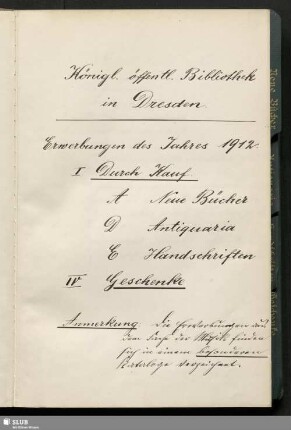 Königl. öffentl. Bibliothek
in Dresden
Erwerbungen des Jahres 1912.
I Durch Kauf
A Neue Bücher
D Antiquaria
E Handschriften
IV Geschenke
Anmerkung Die Erwerbungen aus
dem Fache der Musik finden
sich in einem besonderen
Kataloge verzeichnet.
Neue Bücher
SLUB